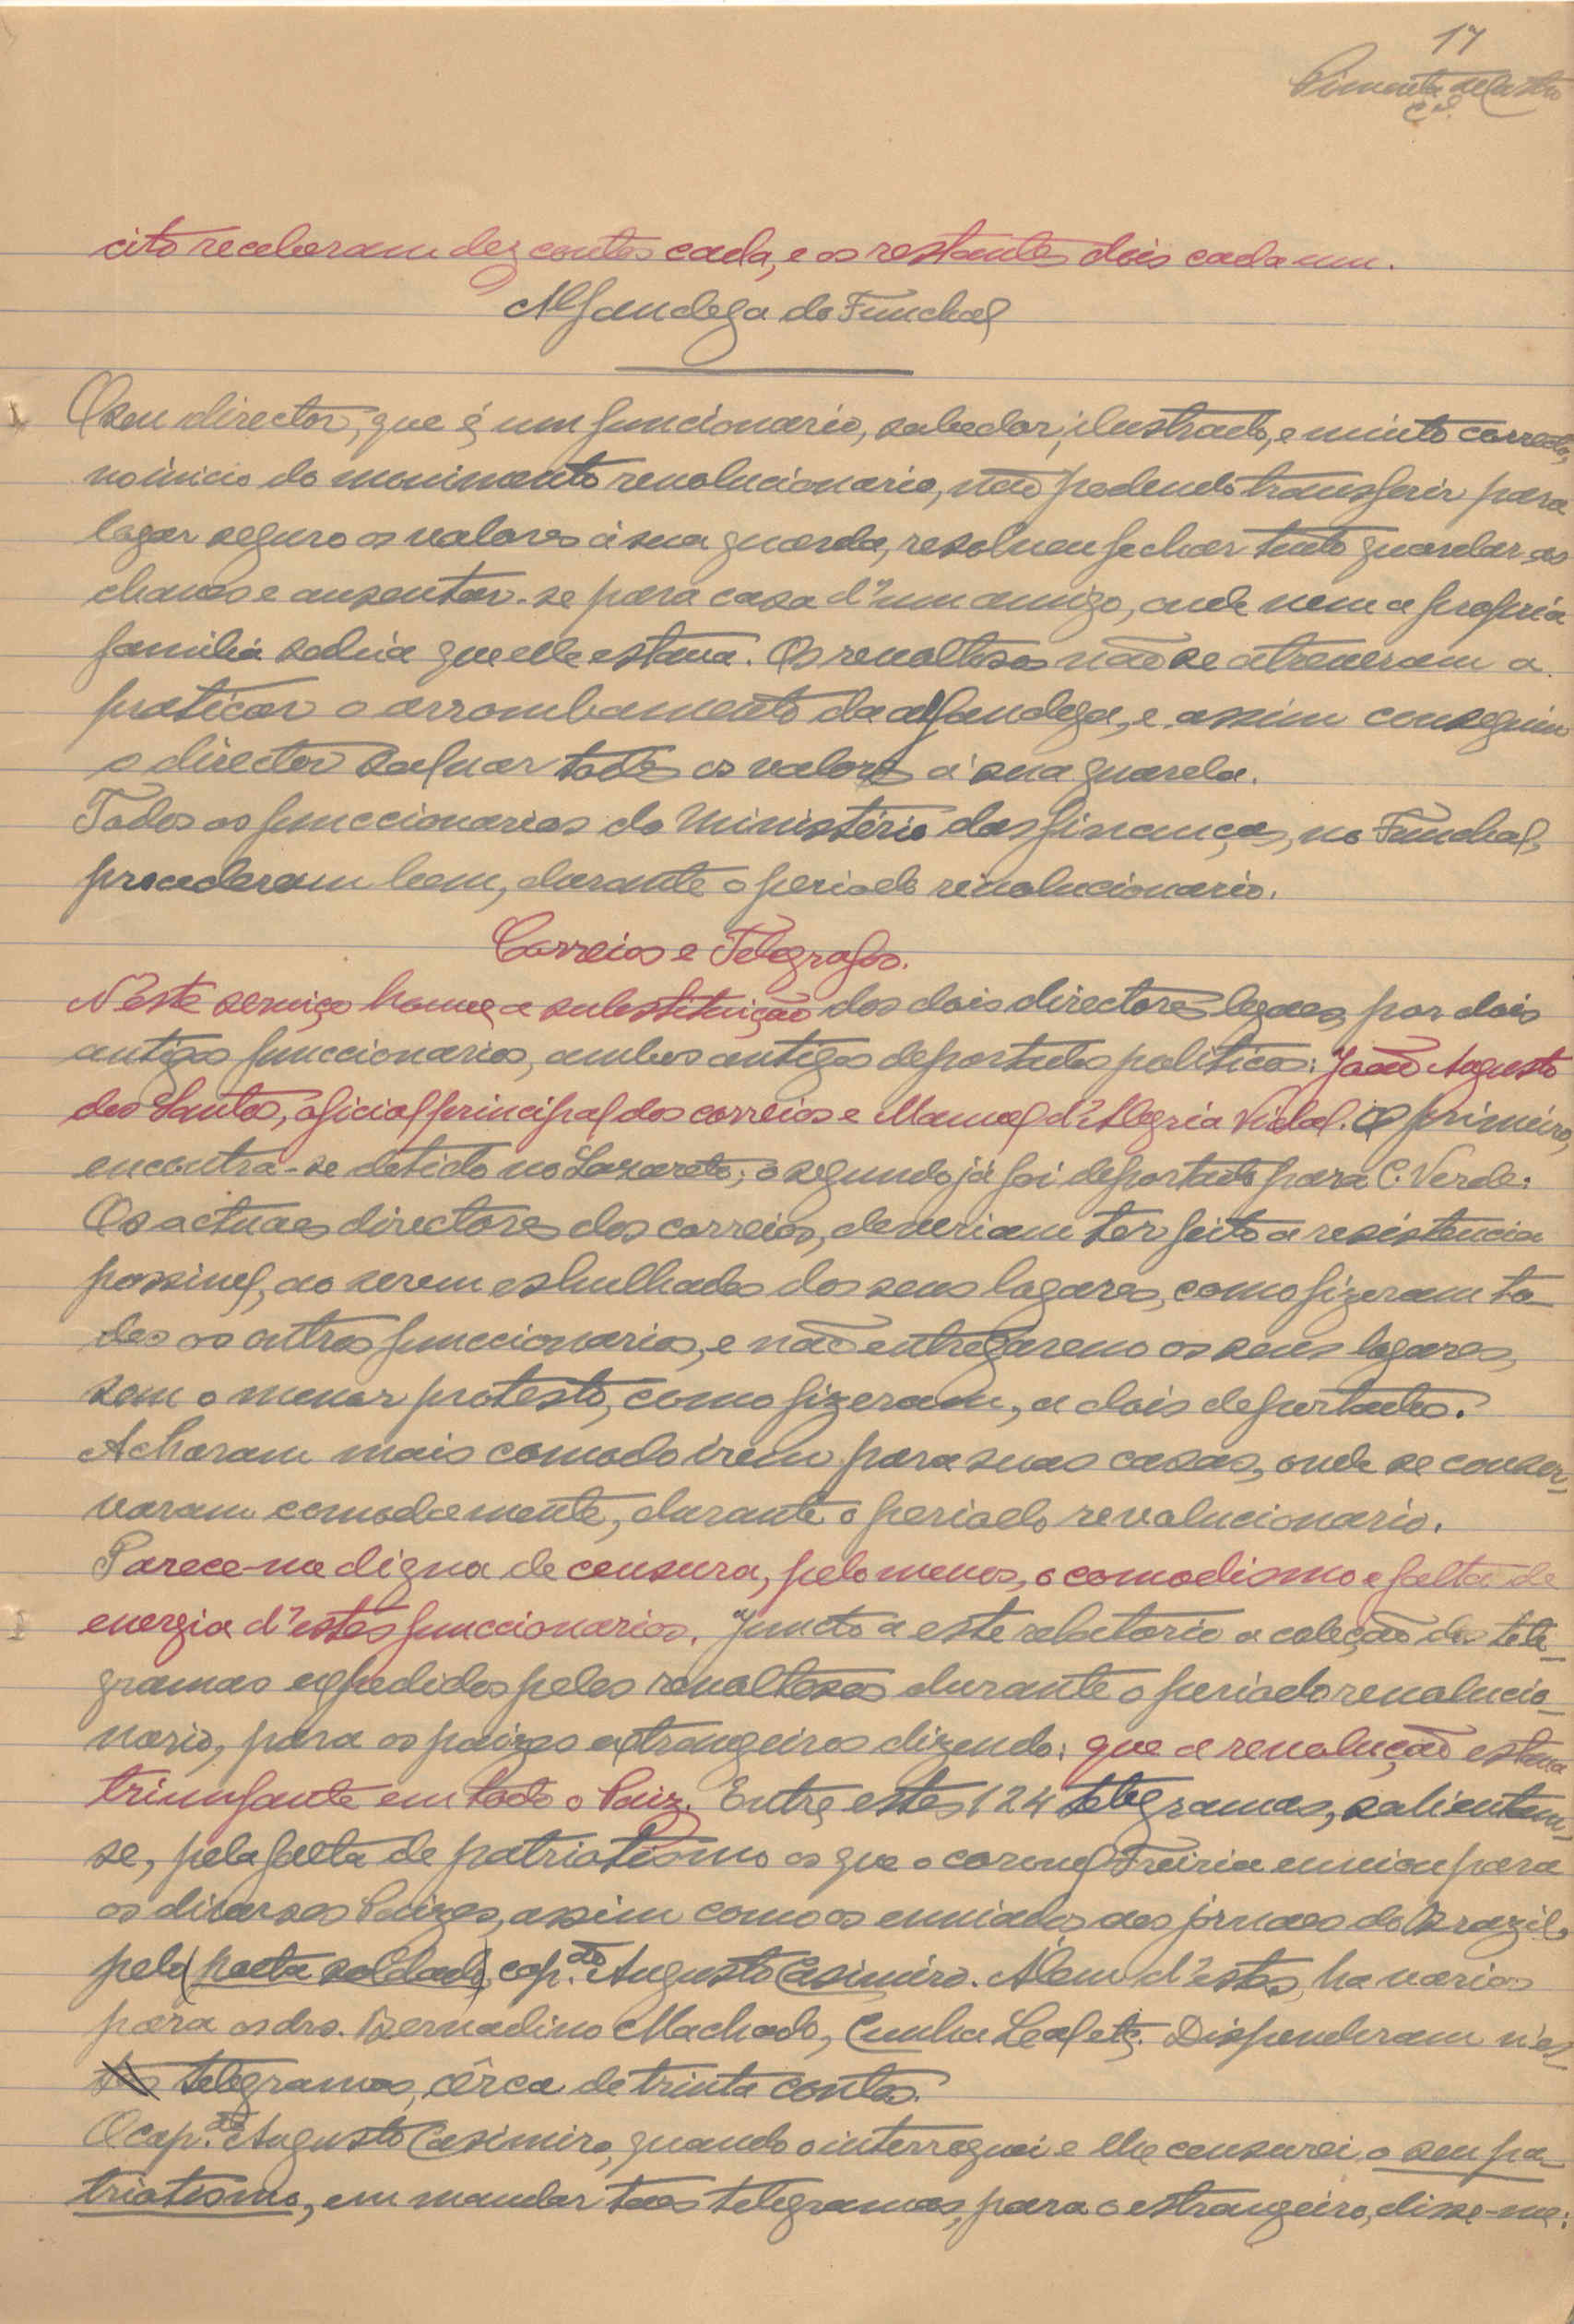 17
Pimenta de Castro
C.el
cito receberam dez contos cada, e os restantes dois cada um.
Alfandega do Funchal
O seu director, que é um funcionario, sabedor, ilustrado, e muito correcto,
no inicio do movimento revolucionario, não podendo transferir para
logar seguro os valores á sua guarda, resolveu fechar tudo guardar as
chaves e ausentar-se para casa d'um amigo, onde nem a propria
familia sabia que elle estava. Os revoltosos não se atreveram a
praticar o arrombamento da alfandega, e assim conseguiu
o director salvar todos os valores á sua guarda.
Todos os funccionarios do Ministério das finanças, no Funchal,
procederam bem, durante o periodo revolucionario.
Correios e Telegrafos.
N'este serviço houve a substituição dos dois directores legaes, por dois
antigos funccionarios, ambos antigos deportados politicos: João Augusto
dos Santos, oficial principal dos correios e Manuel d'Alegria Vidal. O primeiro,
encontra-se detido no Lazareto; o segundo já foi deportado para C. Verde:
Os actuaes directores dos correios, deveriam ter feito a resistencia
possivel, ao serem esbulhados dos seus logares, como fizeram to-
dos os outros funccionarios, e não entregarem os seus logares,
sem o menor protesto, como fizeram, a dois deportados.
Acharam mais comodo irem para suas casas, onde se conser-
varam comodamente, durante o periodo revolucionario.
Parece-me digna de censura, pelo menos, o comodismo e falta de
energia d'estes funccionarios. Juncto a este relatorio a coleção dos tele-
gramas expedidos pelos revoltosos durante o periodo revolucio-
nario, para os paizes extrangeiros dizendo: que a revolução estava
triunfante em todo o Paiz. Entre estes 124 telegramas, salientam-
se, pela falta de patriotismo os que o coronel Freiria enviou para
os diversos Paizes, assim como os enviados aos jornaes do Brazil,
pelo (poeta soldado) cap.ão Augusto Casimiro. Além d'estes, ha varios
para os drs. Bernadino Machado, Cunha Leal etc. Dispenderam n'es-
tes telegramas, cêrca de trinta contos.
O cap.ão Augusto Casimiro, quando o interroguei e lhe censurei o seu pa-
triotismo, em mandar taes telegramas, para o estrangeiro, disse-me: